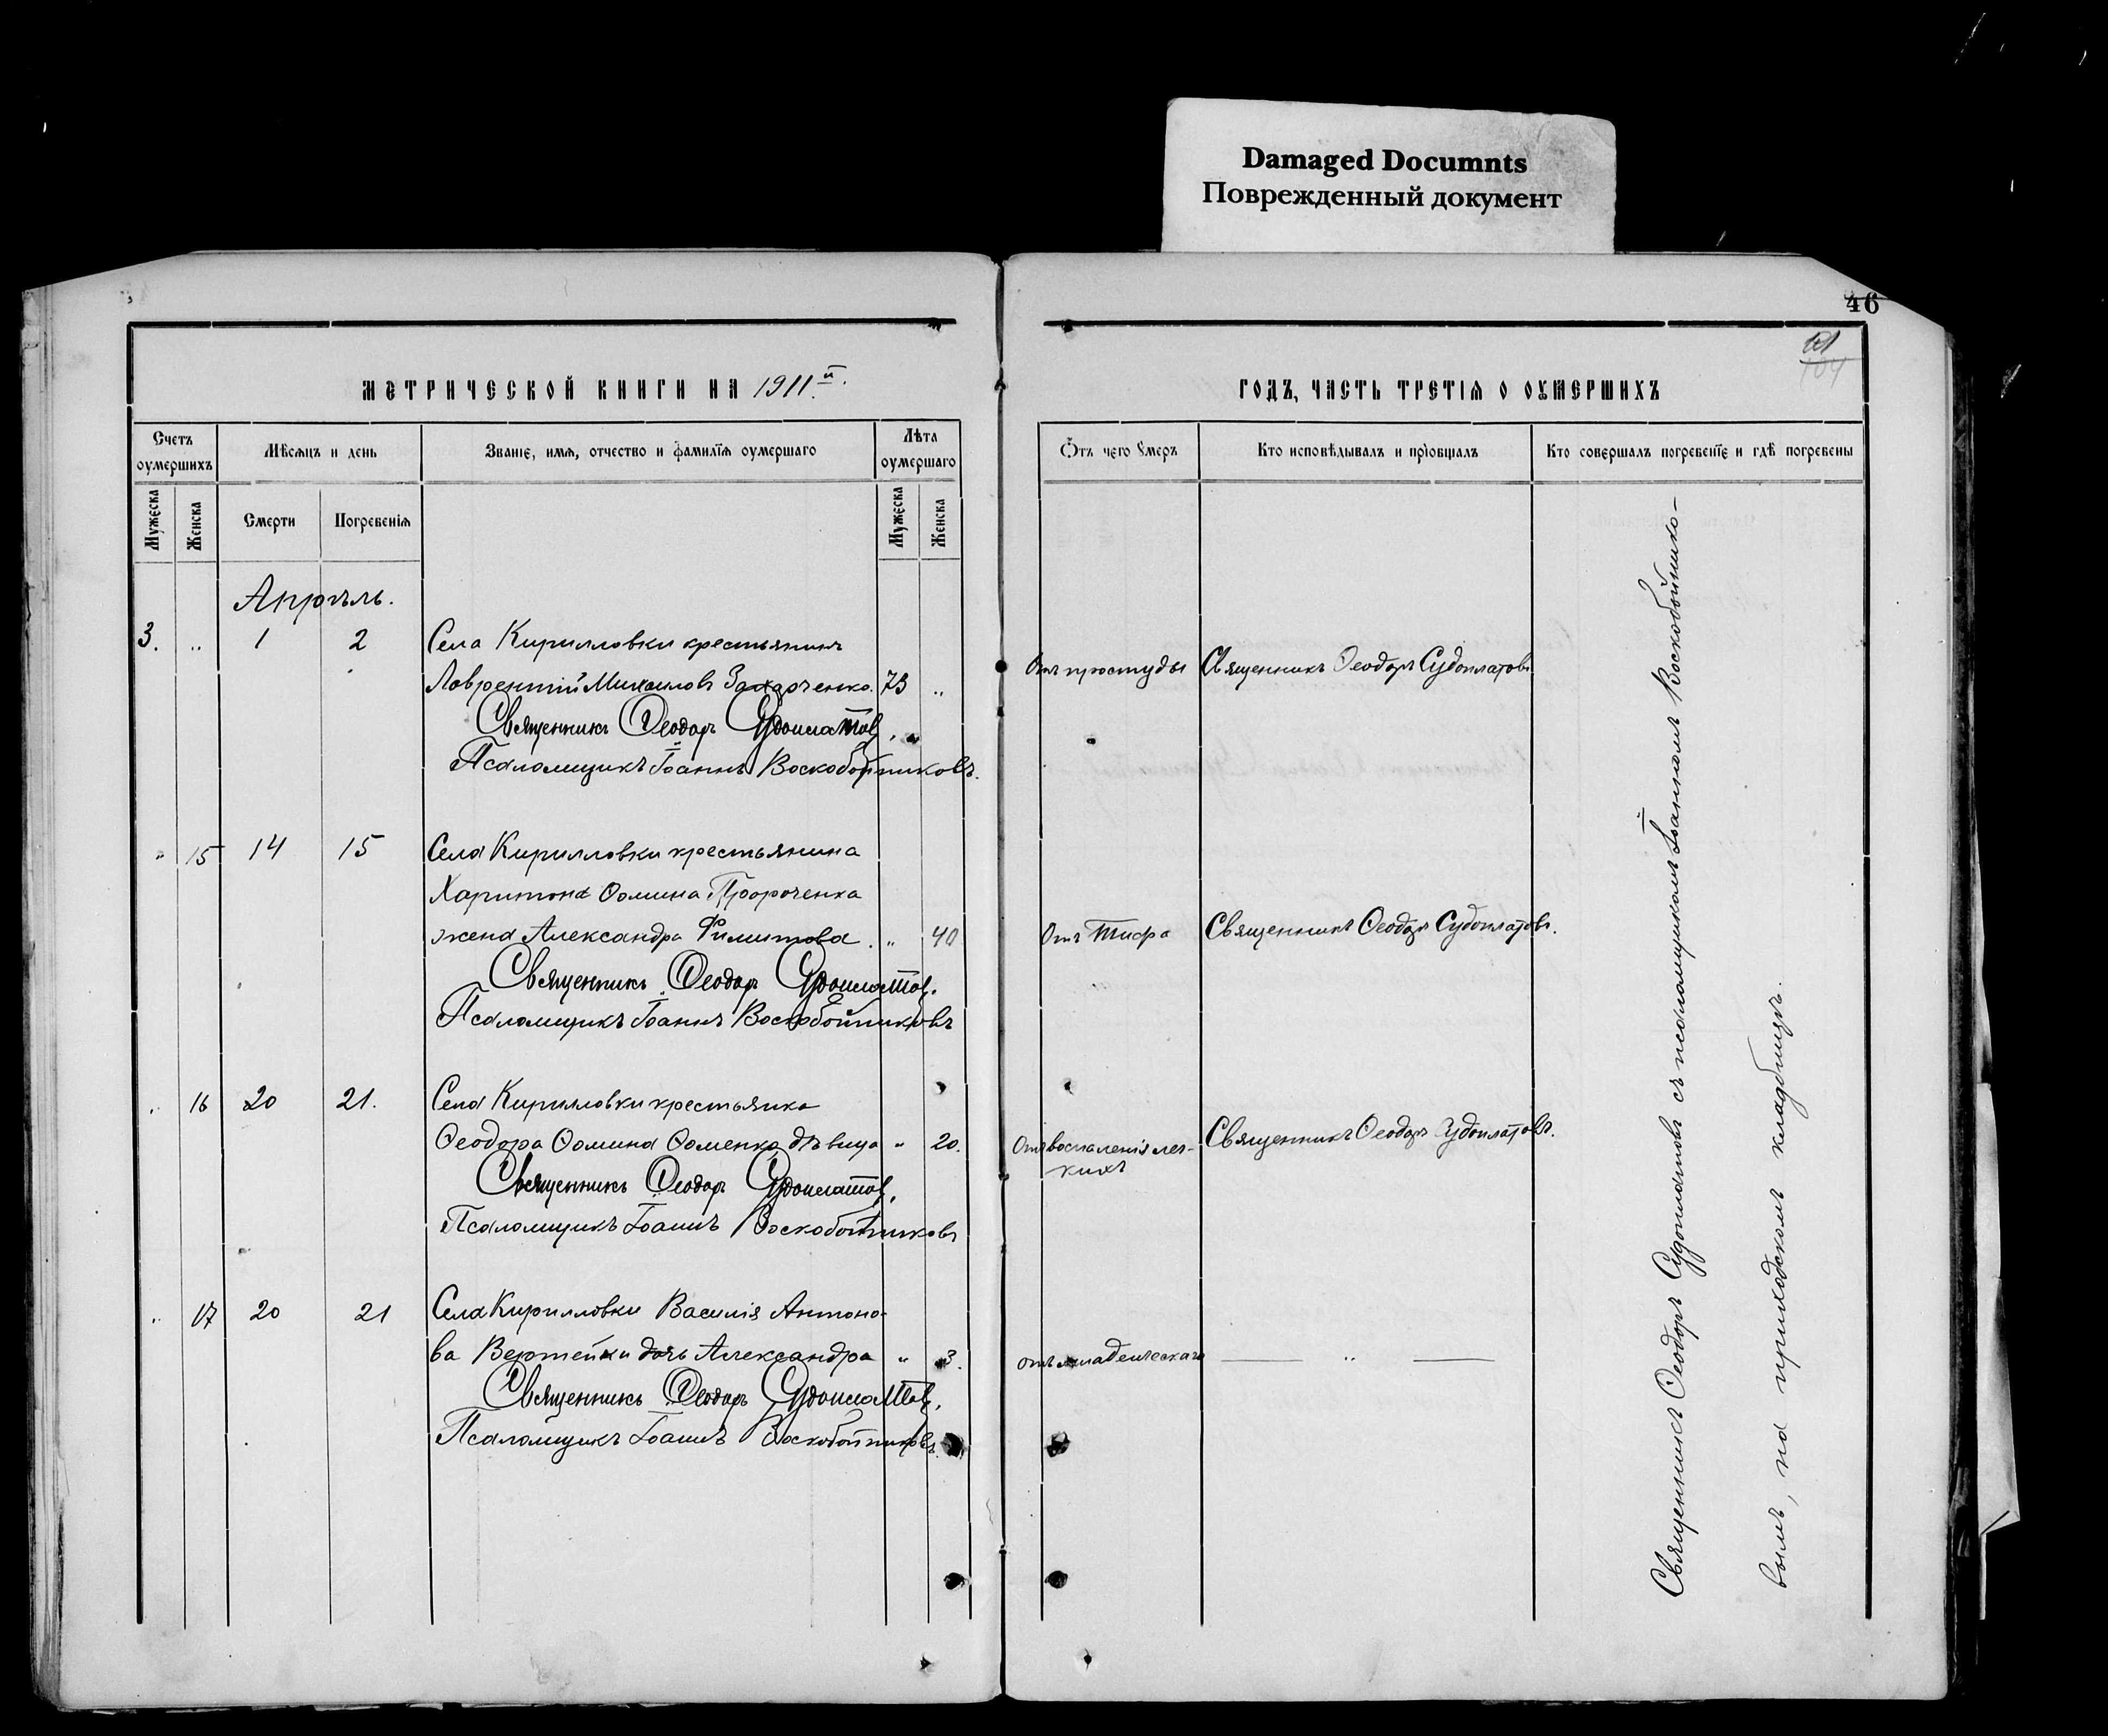 Damaged Documnts
Поврежденный документ
46
МЕТРИЧЕСКОЙ КНИГИ НА 1911й.
ГОДЪ, ЧАСТЬ ТРЕТІЯ О ОУМЕРШИХЪ
Счетъ оумершихъ
Мѣсяцъ и день
Званіе, имя, отчество и фамилія оумершаго
Лѣта оумершаго
Отъ чего Умеръ
Кто исповѣдывалъ и пріобщалъ
Кто совершалъ погребеніе и гдѣ погребены
Мужеска
Женска
Смерти
Погребенія
Мужеска
Женска
Апрѣль.
3. „ 1 2 Села Кирилловки крестьянинъ
Лаврентій Михаиловъ Захарченко. 73 „
Отъ простуды Священникъ Ѳеодоръ Судоплатовъ
Священникъ Ѳеодоръ Судоплатовъ.
Псаломщикъ Іоаннъ Воскобойниковъ.
„ 15 14 15 Села Кирилловки крестьянина
Харитона Ѳомина Пророченка
жена Александра Филиппова. „ 40
Отъ тифа Священникъ Ѳеодоръ Судоплатовъ.
Священникъ Ѳеодоръ Судоплатовъ.
Псаломщикъ Іоаннъ Воскобойниковъ
„ 16 20 21. Села Кирилловки крестьянка
Ѳеодора Ѳомина Ѳоменко дѣвица „ 20.
Отъ воспаленія лег-
кихъ
Священникъ Ѳеодоръ Судоплатовъ.
Священникъ Ѳеодоръ Судоплатовъ.
Псаломщикъ Іоаннъ Воскобойниковъ
„ 17 20 21 Села Кирилловки Василія Антоно-
ва Вертейки дочь Александра „ 3.
отъ младенческаго — „ —
Священникъ Ѳеодоръ Судоплатовъ.
Псаломщикъ Іоаннъ Воскобойниковъ.
Священникъ Ѳеодоръ Судоплатовъ съ псаломщикомъ Іоанномъ Воскобойнико-
вымъ, на приходскомъ кладбищѣ.